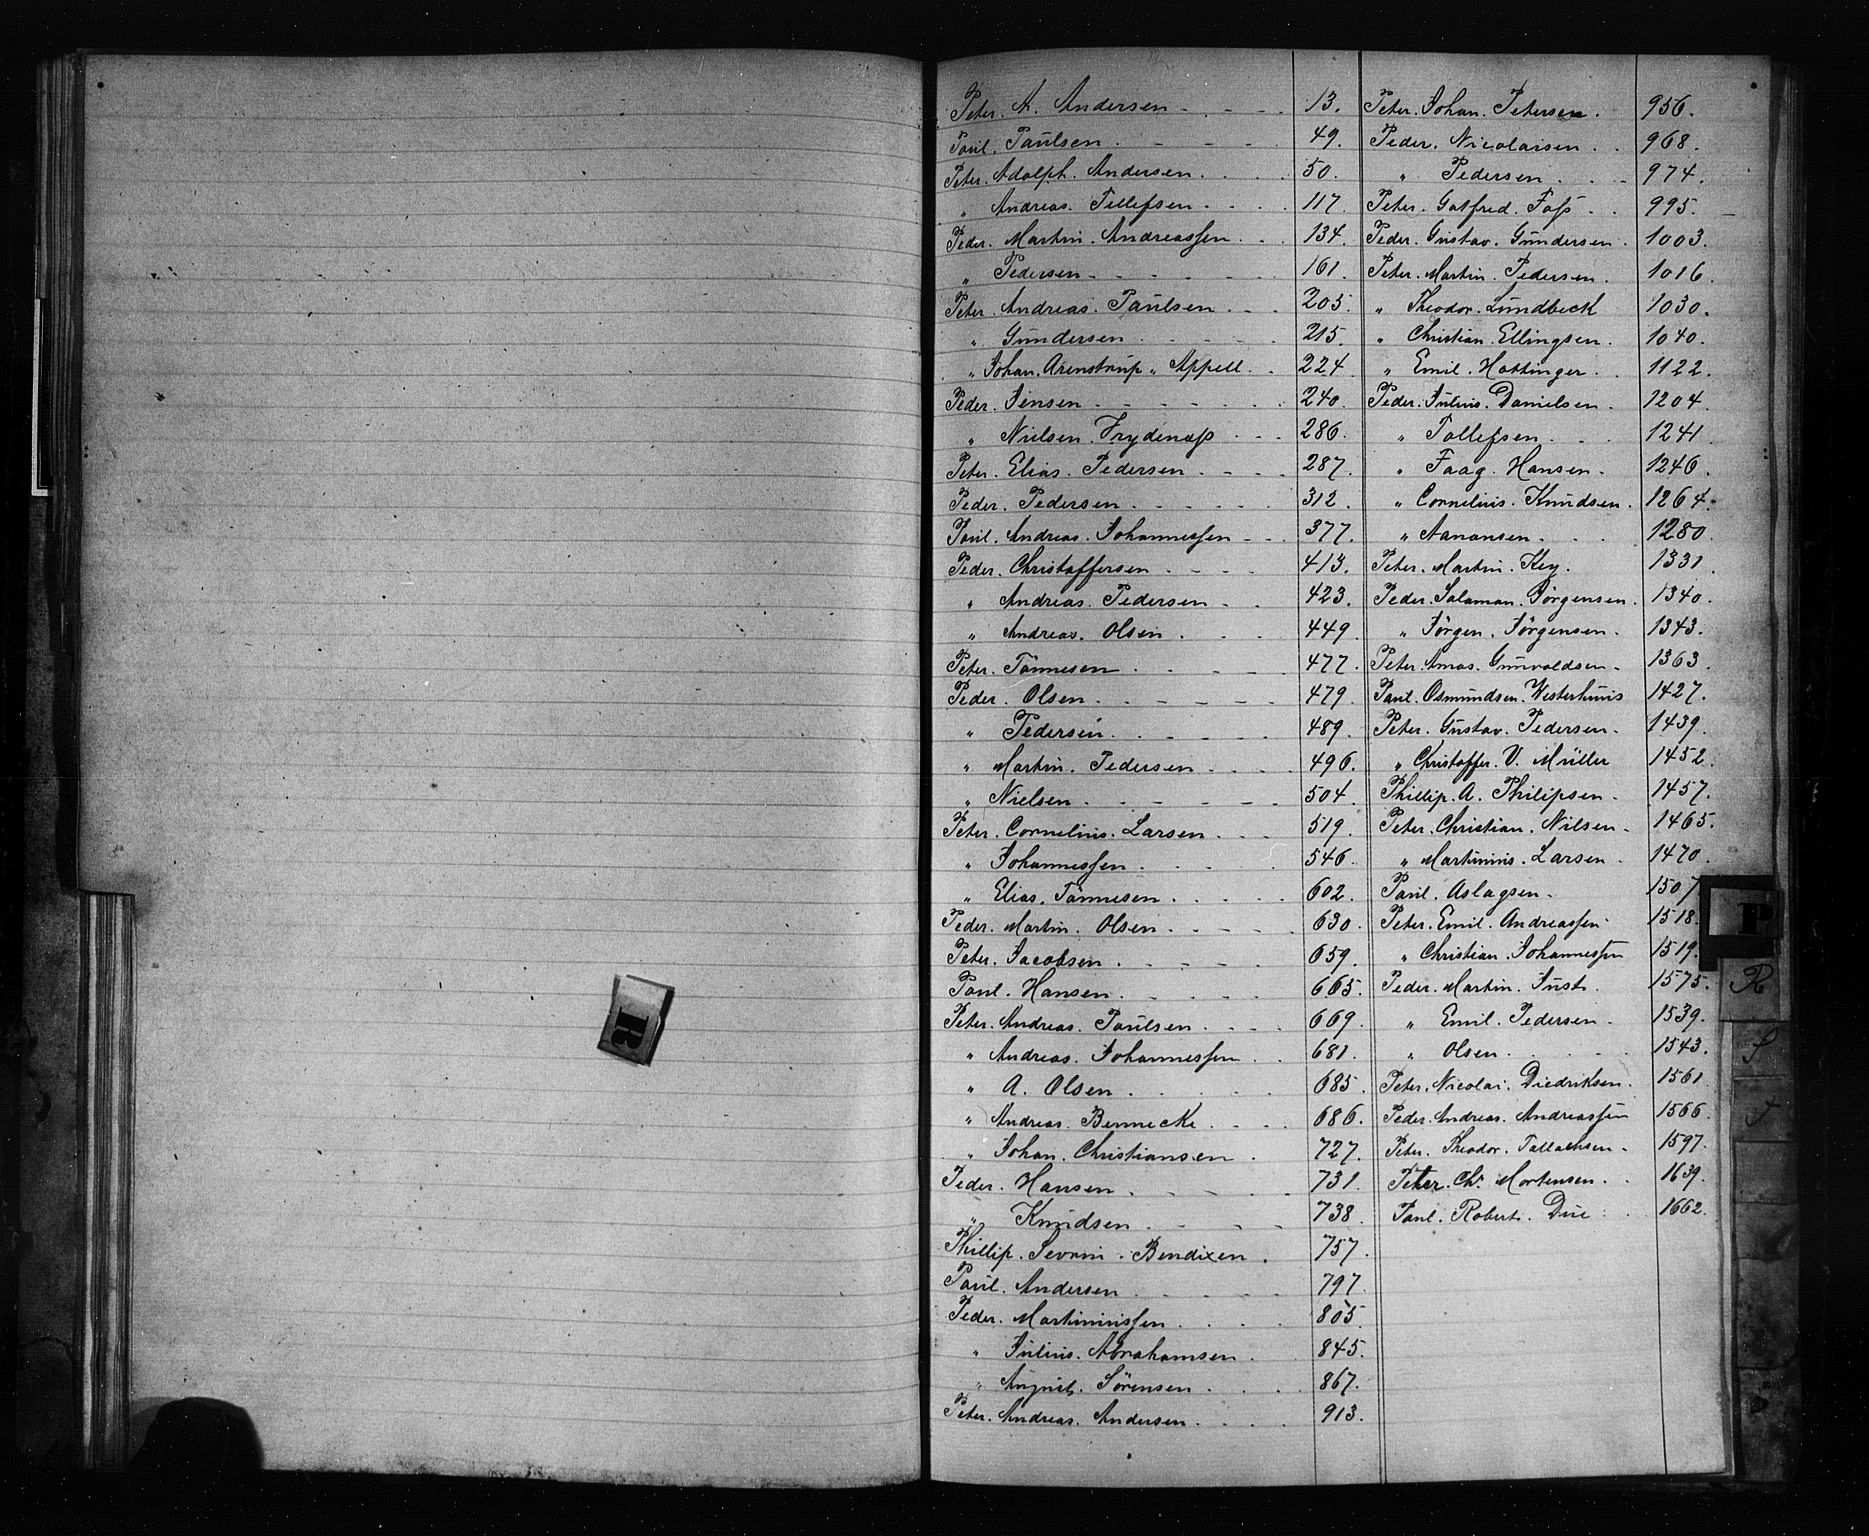 Peter. A. Andersen 13.
Paul. Paulsen 49.
Peter. Adolph. Andersen 50.
" Andreas. Tellefsen 117.
Peder. Martin. Andreassen 134.
" Pedersen 161.
Peter. Andreas. Paulsen 205.
" Gundersen 215.
" Johan. Arenstrup " Appell 224.
Peder. Jensen 240.
" Nielsen. Frydenæss 286.
Peter. Elias. Pedersen 287.
Peder. Pedersen 312.
Paul. Andreas. Johannessen 377.
Peder. Christoffersen 413.
" Andreas. Pedersen 423.
" Andreas. Olsen 449.
Peter. Tönnesen 477.
Peder. Olsen 479.
" Pedersen 489.
" Martin. Pedersen 496.
" Nielsen 504.
Peter. Cornelius. Larsen 519.
" Johannessen 546.
" Elias. Tönnesen 602.
Peder. Martin. Olsen 630.
Peter. Jacobsen 659.
Paul. Hansen 665.
Peter. Andreas. Paulsen 669.
" Andreas. Johannessen 681.
" A. Olsen 685.
" Andreas. Bennecke 686.
" Johan. Christiansen 727.
Peder. Hansen 731.
" Knudsen 738.
Phillip. Severin. Bendixen 757.
Paul. Andersen 797.
Peder. Martiniussen 805.
" Julius. Abrahamsen 845.
" August. Sörensen 867.
Peter. Andreas. Andersen 913.
Peter. Johan. Petersen 956.
Peder. Nicolaisen 968.
" Pedersen 974.
Peter. Gotfred. Foss 995.
Peder. Gustav. Gundersen 1003.
Peter. Martin. Pedersen 1016.
" Theodor. Lundbeck 1030.
" Christian. Ellingsen 1040.
" Emil. Hattinger 1122.
Peder. Julius. Danielsen 1204.
" Tollefsen 1241.
" Faag. Hansen 1246.
" Cornelius. Knudsen 1264.
" Aanonsen 1280.
Peter. Martin. Key. 1331.
Peder. Salaman. Jörgensen 1340.
" Jörgen. Jörgensen 1343.
Peter. Amas. Gunvaldsen 1363.
Paul. Osmundsen. Westerhuus 1427.
Peter. Gustav. Pedersen 1439.
" Christoffer. V. Müller 1452.
Phillip. A. Philipsen 1457.
Peter. Christian. Nilsen 1465.
" Martinius. Larsen 1470.
Paul. Aslagsen 1507
Peter. Emil. Andreassen 1518.
" Christian. Johannessen 1519.
Peder. Martin. Just. 1575.
" Emil. Pedersen 1539.
" Olsen 1543.
Peter. Nicolai. Diedriksen 1561
Peder. Andreas. Andreassen 1566.
Peter. Theodor. Tallachsen 1597.
Peter. Chr. Mortensen 1639.
Paul. Robert. Due 1662.
P
R
S
T
R